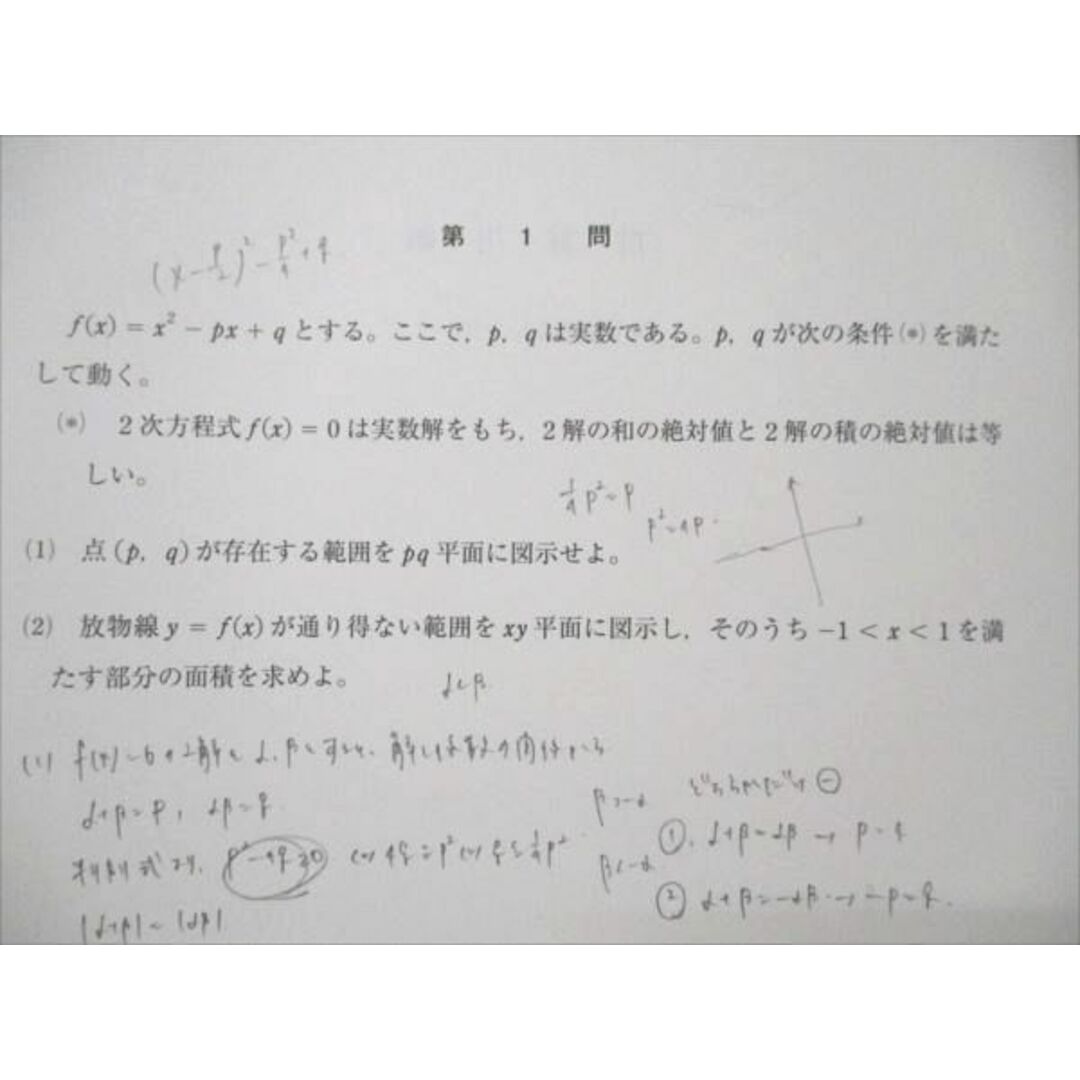 第 1 問
(x - p/2)² - p²/4 + q
f(x) = x² - px + q とする。ここで, p, q は実数である。p, q が次の条件(*)を満た
して動く。
(*) 2次方程式 f(x) = 0 は実数解をもち, 2解の和の絶対値と2解の積の絶対値は等
しい。
(1) 点(p, q)が存在する範囲を pq 平面に図示せよ。
(2) 放物線 y = f(x) が通り得ない範囲を xy 平面に図示し, そのうち -1 < x < 1 を満
たす部分の面積を求めよ。
α<β
(1) f(x)=0の2解をα, βとすると、解と係数の関係から
α+β=p, αβ=q
判別式より, p²-4q≧0
|α+β|=|αβ|
β>-α
β<-α
① α+β=αβ → p=q
② α+β=-αβ → -p=q.